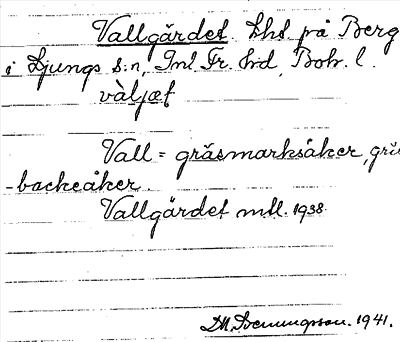 Vallgärdet. Lhs på Berg
i Ljungs s:n, Inl. Fr. hd, Boh. l.
vàljæt
Vall = gräsmarksåker, gräs
-backeåker.
Vallgärdet mtl. 1938
1941.